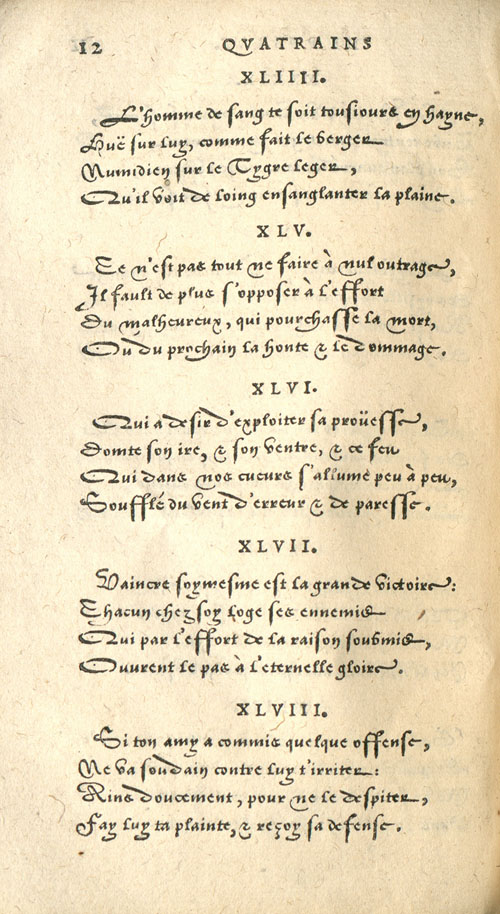 12 QVATRAINS
XLIIII.
L'homme de sang te soit tousiours en hayne,
Huë sur luy, comme fait le berger
Numidien sur le Tygre leger,
Qu'il voit de loing ensanglanter la plaine.
XLV.
Ce n'est pas tout ne faire à nul outrage,
Il fault de plus s'opposer à l'effort
Du malheureux, qui pourchasse la mort,
Ou du prochain la honte & le dommage.
XLVI.
Qui a desir d'exploiter sa proüesse,
Domte son ire, & son ventre, & ce feu
Qui dans nos cueurs s'allume peu à peu,
Soufflé du vent d'erreur & de paresse.
XLVII.
Vaincre soymesme est la grande victoire:
Chacun chez soy loge ses ennemis
Qui par l'effort de la raison soubmis,
Ouurent le pas à l'eternelle gloire.
XLVIII.
Si ton amy a commis quelque offense,
Ne va soudain contre luy t'irriter:
Ains doucement, pour ne le despiter,
Fay luy ta plainte, & reçoy sa defense.